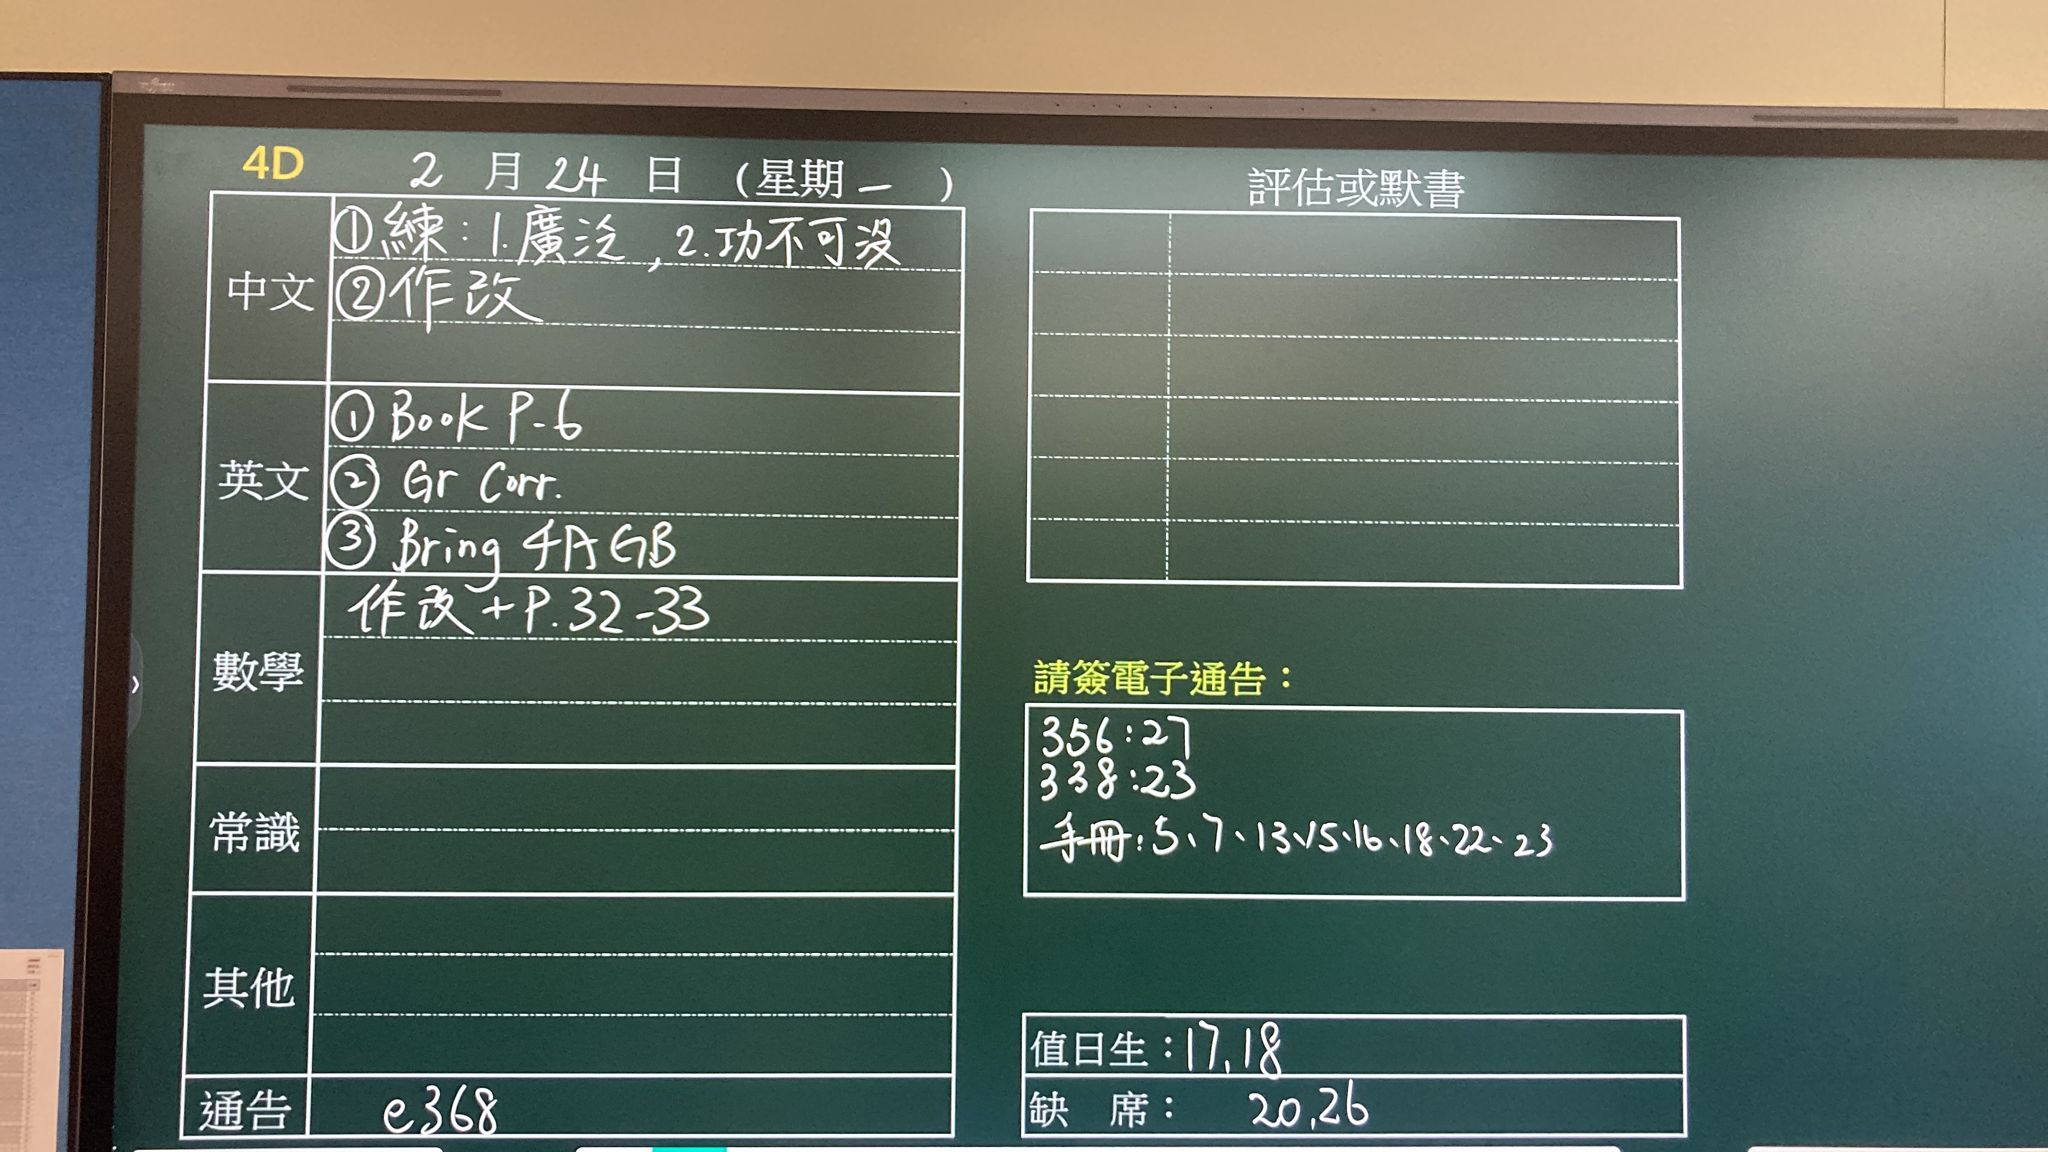 4D 2 月 24 日 (星期一)
中文
①練：1.廣泛，2.功不可沒
②作改
英文
① Book P.6
② Gr Corr.
③ Bring 4A GB
數學
作改+P.32-33
常識
其他
通告 e368
評估或默書
請簽電子通告：
356:27
338:23
手冊：5、7、13、15、16、18、22、23
值日生：17,18
缺 席： 20,26